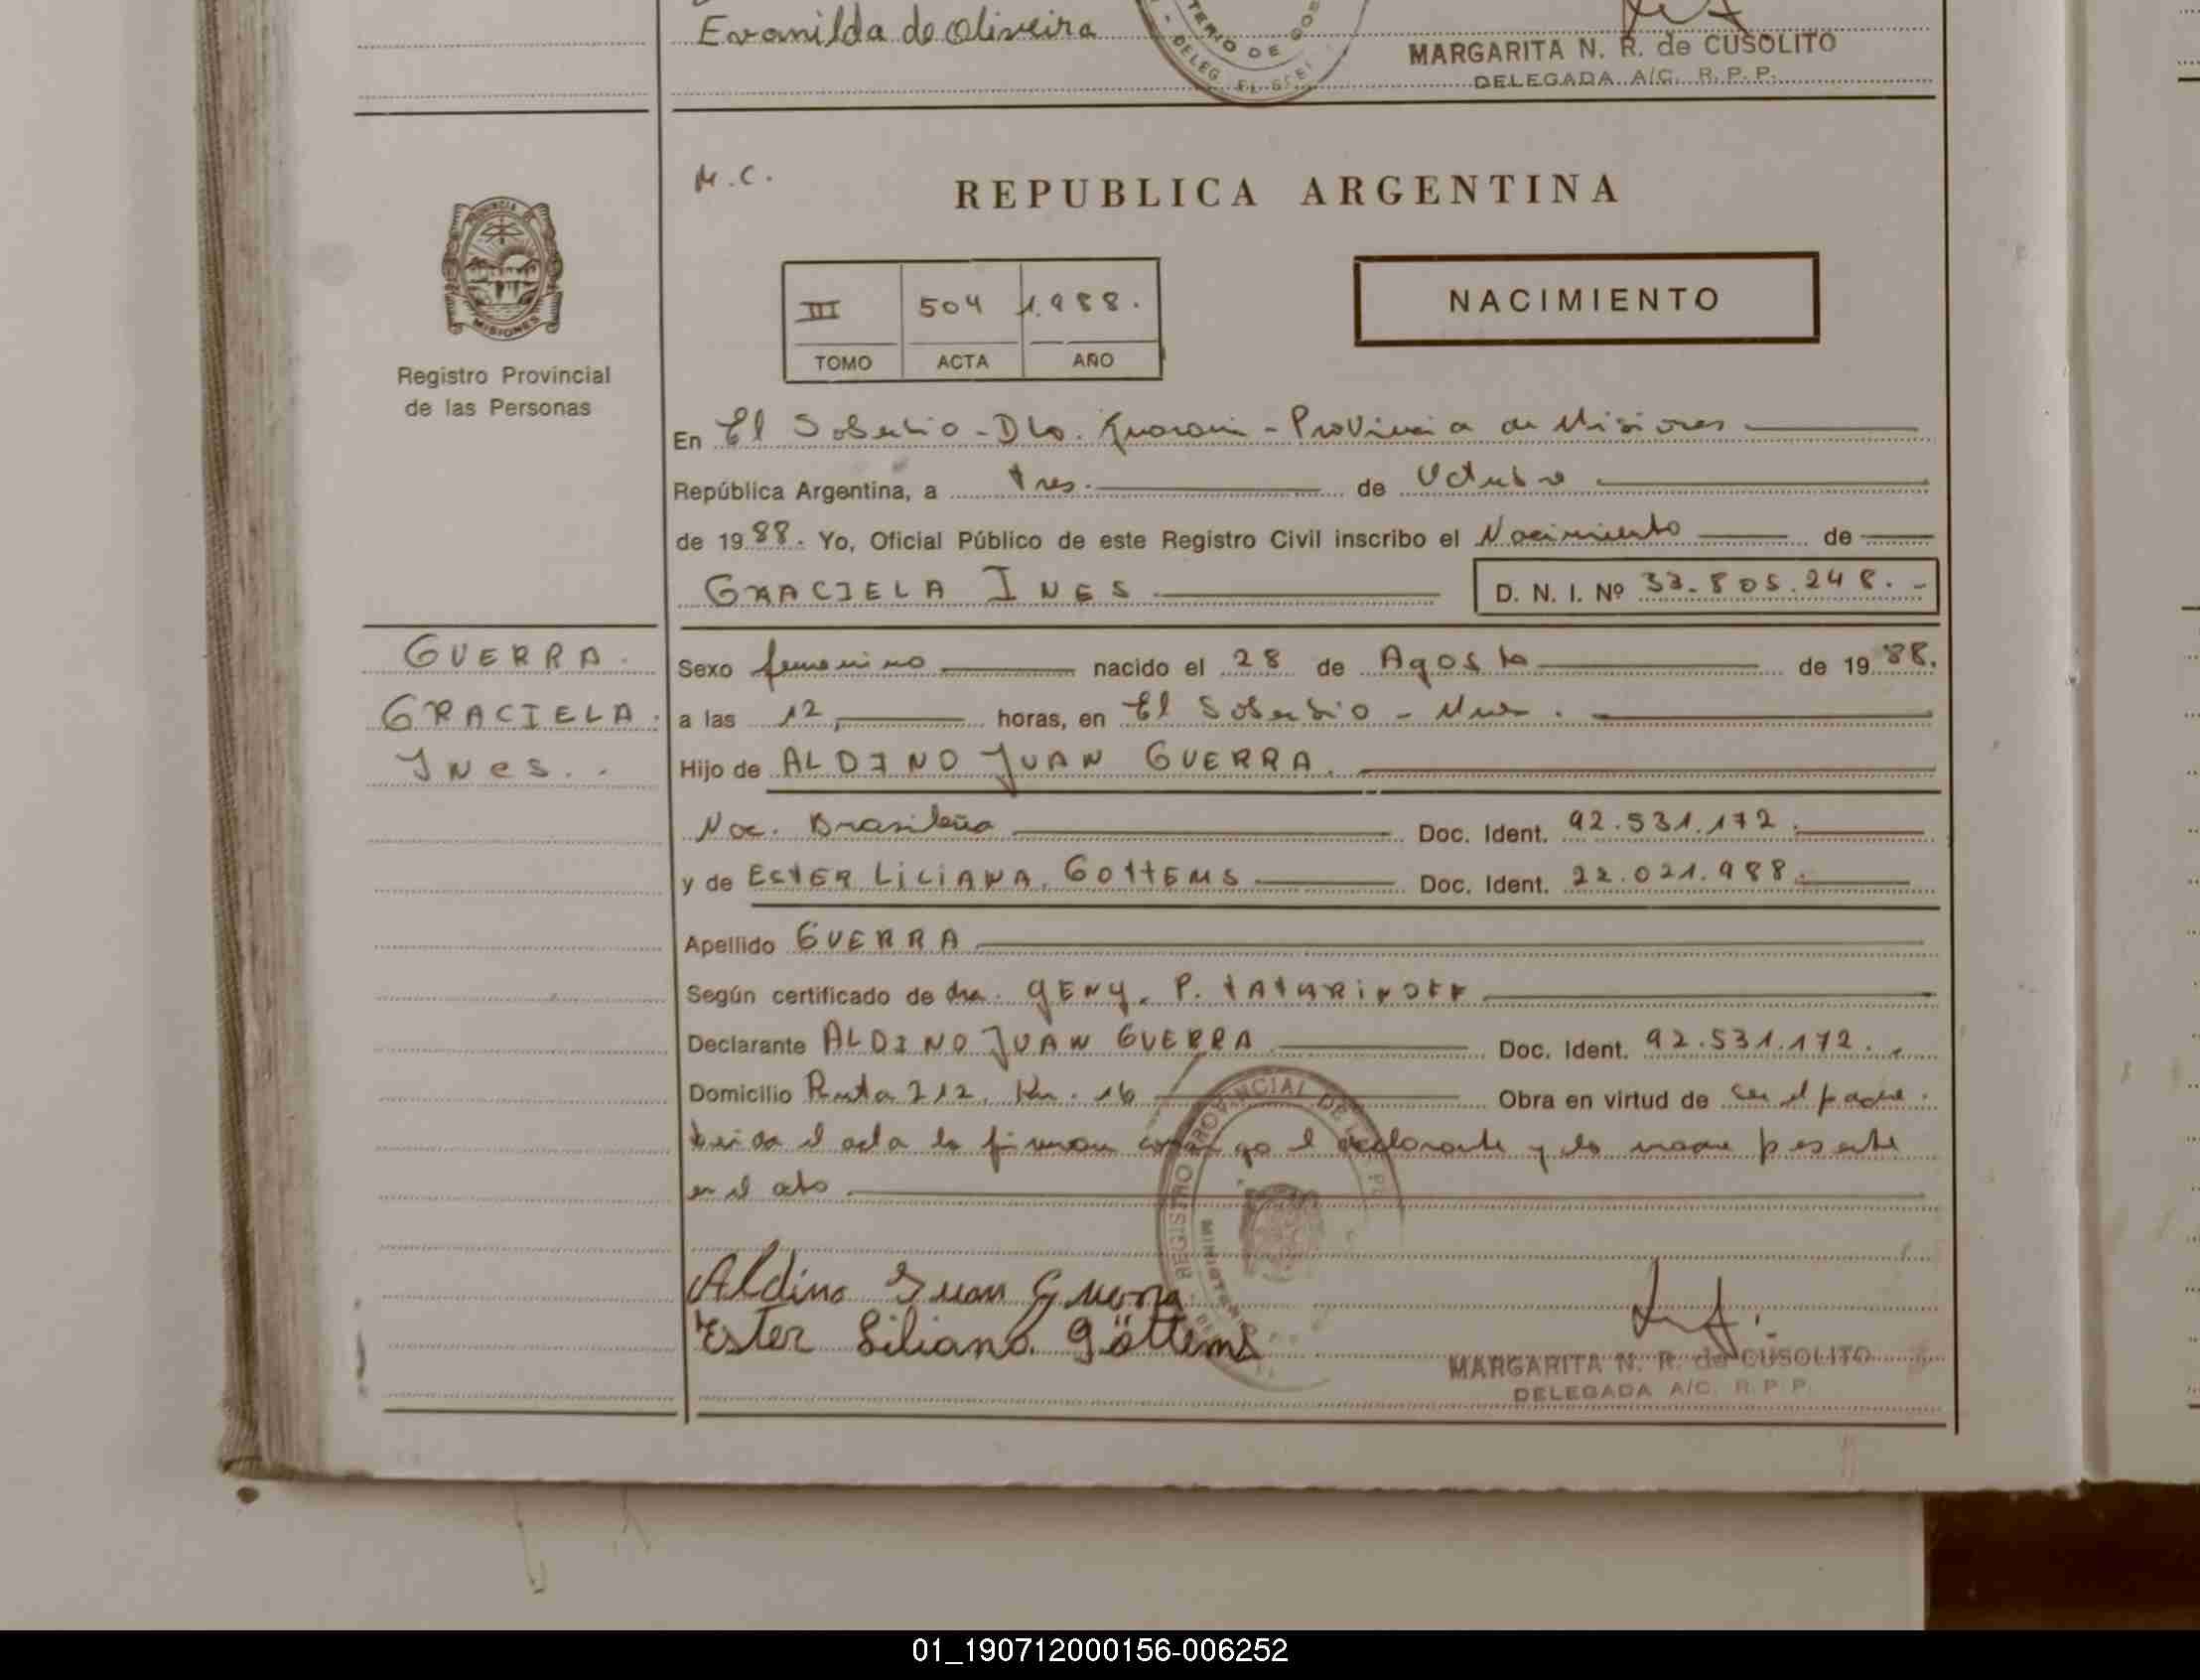 Evanilda de Oliveira
TERIO DE GOB
- DELEG. EL
MARGARITA N. R. de CUSOLITO
DELEGADA A/C. R. P. P.
M.C.
REPUBLICA ARGENTINA
PROVINCIA DE
MISIONES
NACIMIENTO
III 504 1.988.
TOMO ACTA AÑO
Registro Provincial
de las Personas
En El Soberbio - Dto. Guarani - Provincia de Misiones
República Argentina, a tres. de Octubre
de 1988. Yo, Oficial Público de este Registro Civil inscribo el Nacimiento de
GRACIELA INES D. N. I. Nº 33.805.248. -
GUERRA
GRACIELA.
Ines. .
Sexo femenino nacido el 28 de Agosto de 1988.
a las 12, horas, en El Soberbio - Mnes.
Hijo de ALDINO JUAN GUERRA.
Nac. Brasileña Doc. Ident. 92.531.172.
y de ESTER LILIANA GOTTEMS Doc. Ident. 22.021.988.
Apellido GUERRA
Según certificado de dra. GENY. P. TATARINOFF
Declarante ALDINO JUAN GUERRA Doc. Ident. 92.531.172.
Domicilio Ruta 212. Km. 16 Obra en virtud de ser el padre.
leida el acta la firman conmigo el declarante y la madre presente
en el acto
REGISTRO PROVINCIAL DE
Aldino Juan Guerra
Ester Liliana Göttems
MARGARITA N. R. de CUSOLITO
DELEGADA A/C. R. P. P.
01_190712000156-006252